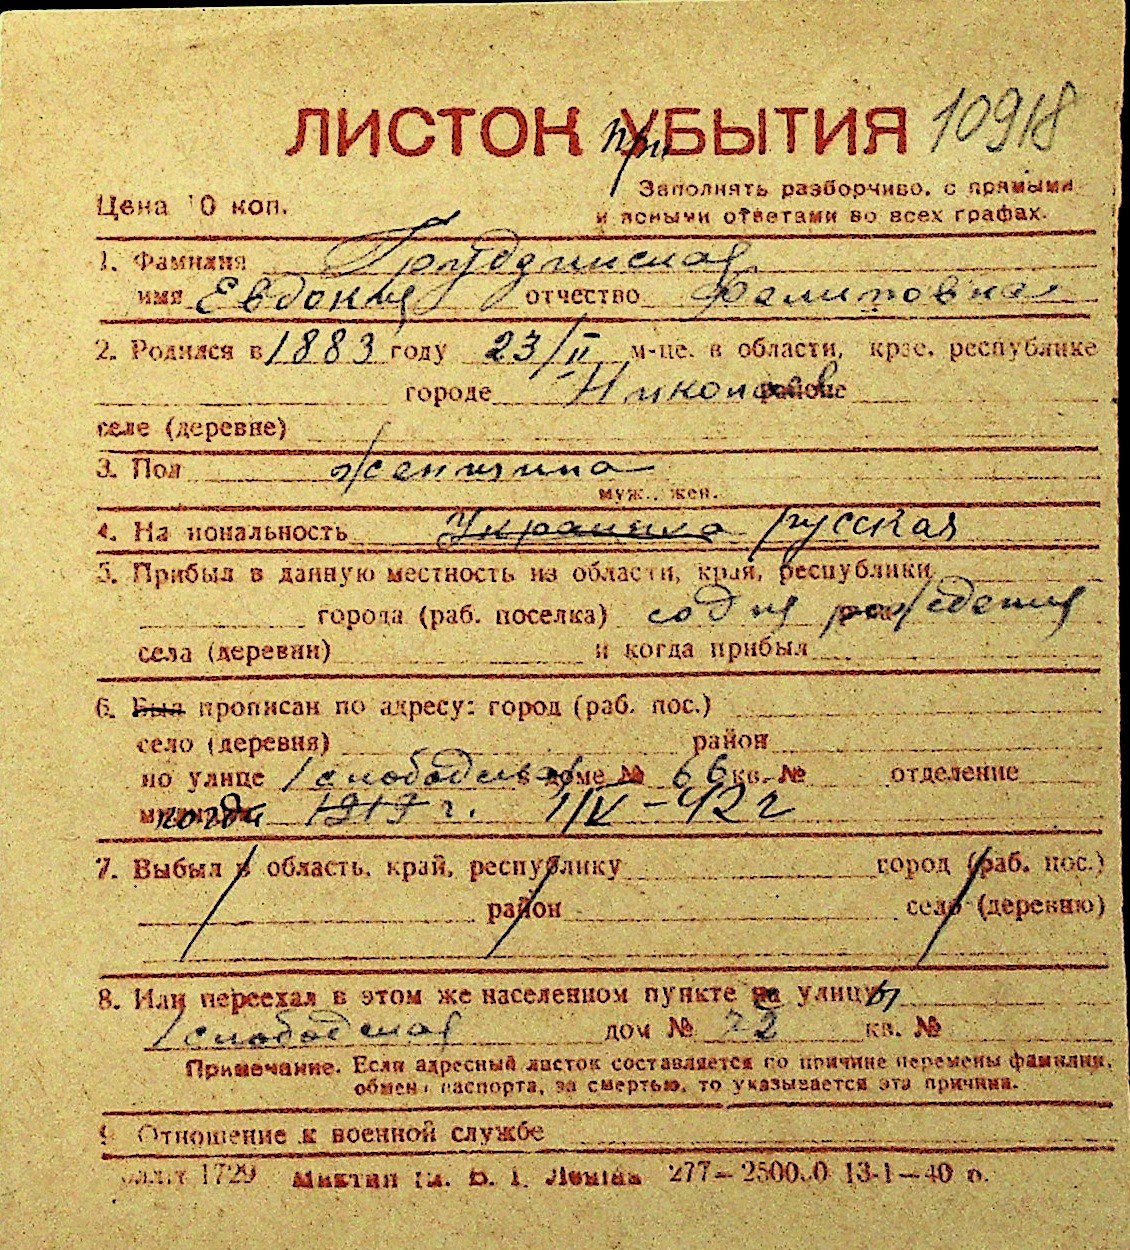 ЛИСТОК УБЫТИЯ 10918
при
Цена 10 коп. Заполнять разборчиво, с прямыми
и ясными ответами во всех графах.
1. Фамилия
имя Евдокия отчество Филиповна
2. Родился в 1883 году 23/II м-це, в области, крае, республике
городе Николаев районе
селе (деревне)
3. Пол женщина
муж., жен.
4. Национальность Украинка русская
5. Прибыл в данную местность из области, края, республики
города (раб. поселка) со дня рождения
села (деревни) и когда прибыл
6. Был прописан по адресу: город (раб. пос.)
село (деревня) район
по улице 1 слободская в доме № 66 кв. № отделение
милиции когда 1919 г. 1/IV-42 г
7. Выбыл в область, край, республику город (раб. пос.)
район село (деревню)
8. Или переехал в этом же населенном пункте на улицу ы
1 слободская дом № 72 кв. №
Примечание. Если адресный листок составляется по причине перемены фамилии,
обмена паспорта, за смертью, то указывается эта причина.
9. Отношение к военной службе
1729 13-1-40 р.